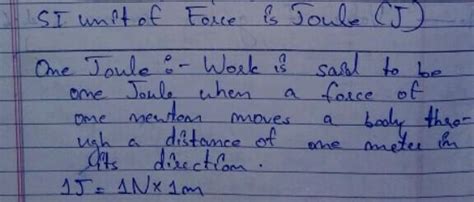 SI unit of Force is Joule (J)
One Joule :- Work is said to be
one Joule when a force of
one newton moves a body thro-
ugh a distance of one meter in
its direction.
1J = 1N × 1m